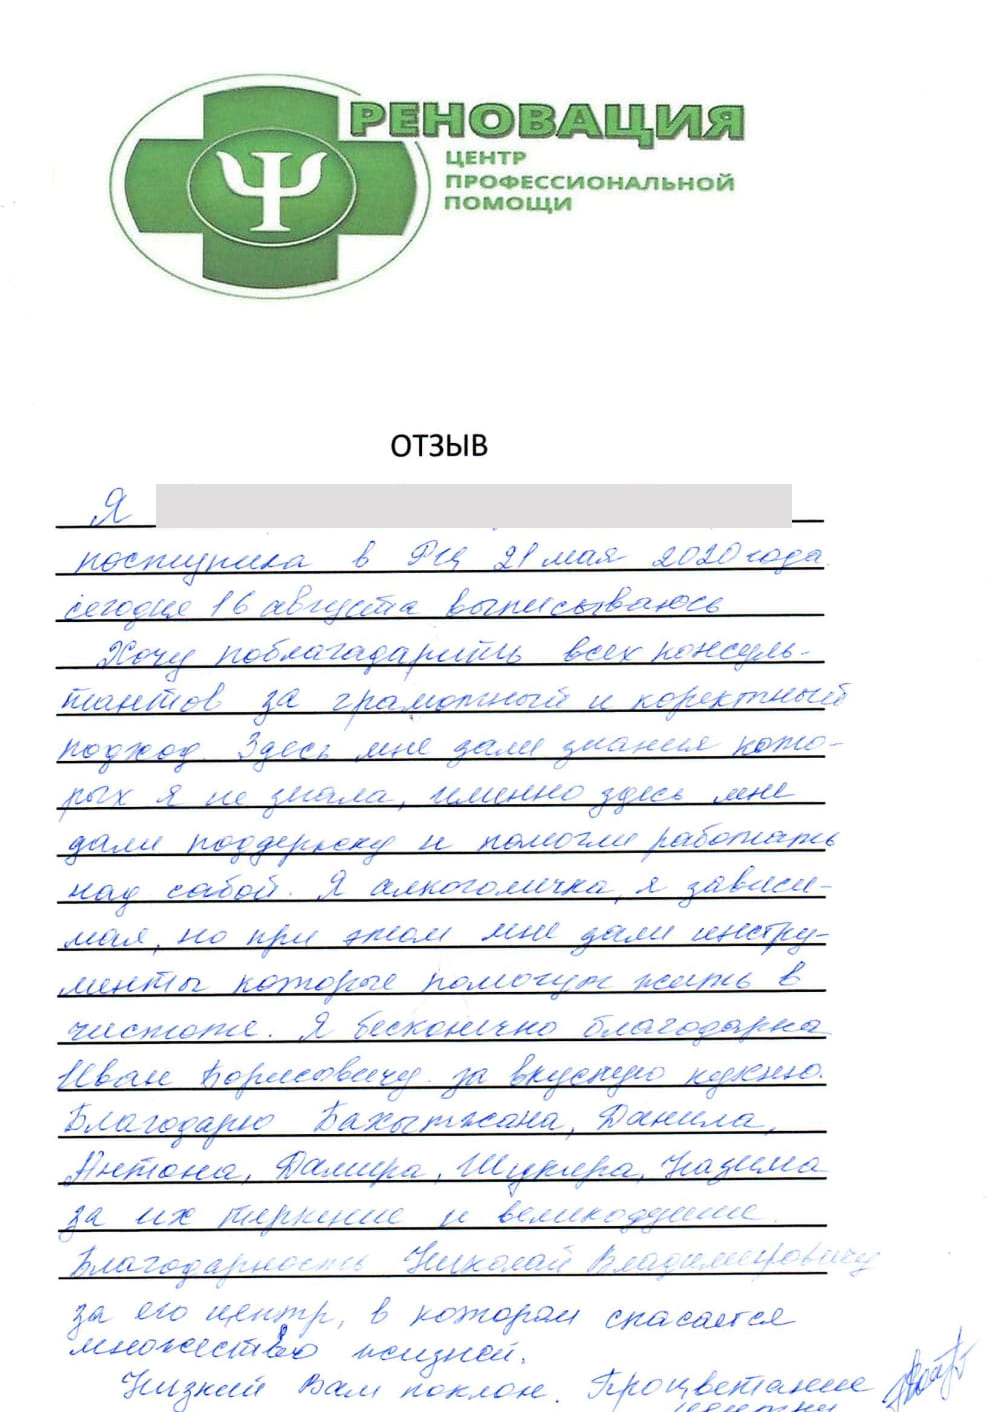 РЕНОВАЦИЯ
ЦЕНТР
ПРОФЕССИОНАЛЬНОЙ
ПОМОЩИ
ОТЗЫВ
Я
поступила в РЦ 21 мая 2020 года.
сегодня 16 августа выписываюсь
Хочу поблагадарить всех консуль-
тантов за грамотный и коректный
подход. Здесь мне дали знания кото-
рых я не знала, именно здесь мне
дали поддержку и помогли работать
над сабой. Я алкоголичка, я зависи-
мая, но при этом мне дали инстру-
менты которые помогут жить в
чистоте. Я бесконечно благодарна
Иван Борисовичу за вкусную кухню.
Благодарю Бахытжана, Данила,
Антона, Дамира, Шукира, Назима
за их терпение и великодушие.
Благодарность Николай Владимировичу
за его центр, в котором спасается
множество жизней.
Низкий Вам поклон. Процветание